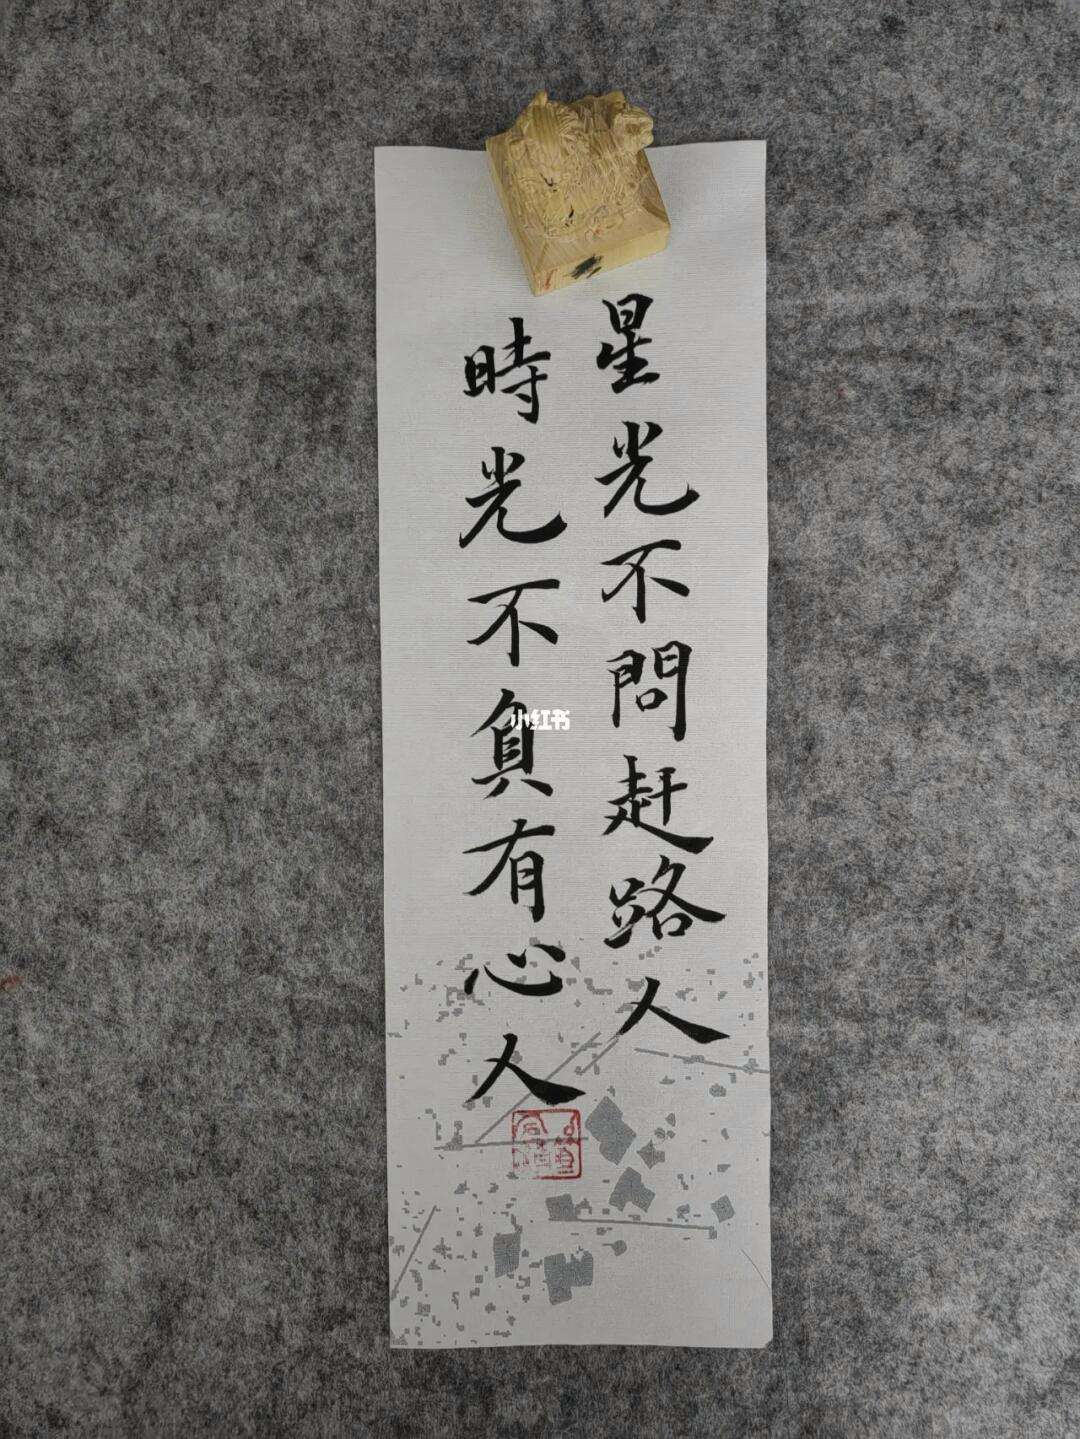 星光不問赶路人
時光不負有心人
小红书